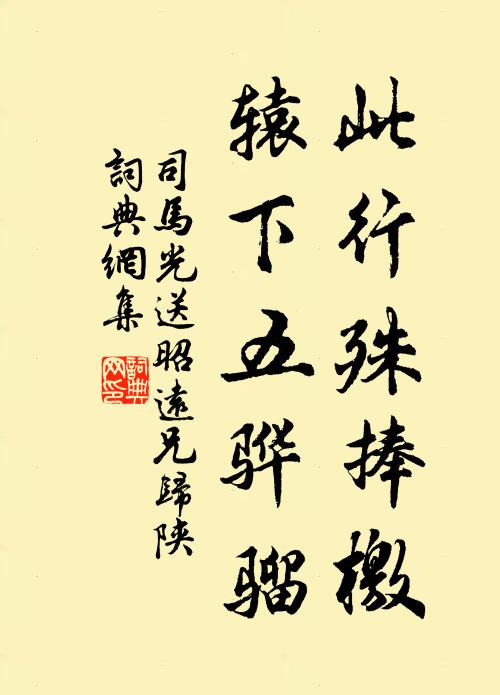 此行殊捧檄
辕下五骅骝
司馬光送昭遠兄歸陝
詞典網集
詞典网印